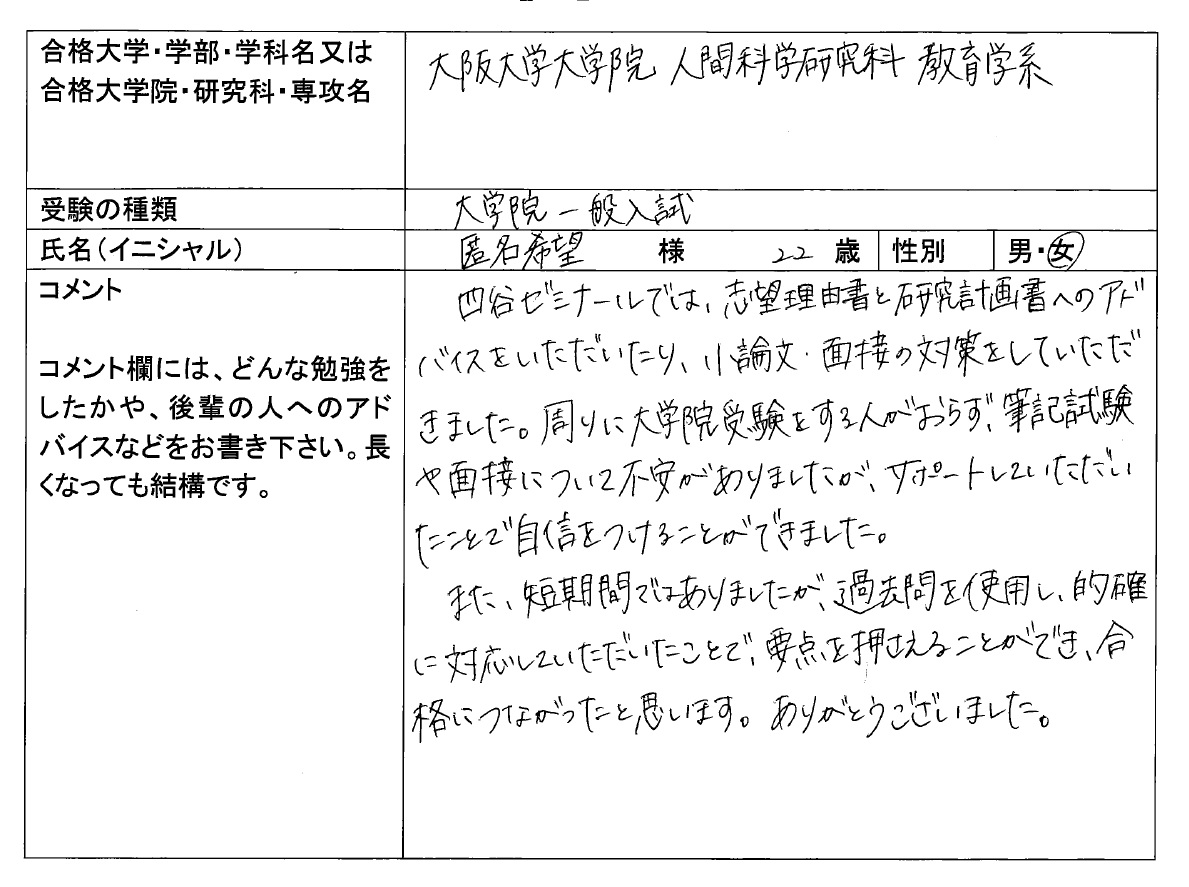 合格大学・学部・学科名又は
合格大学院・研究科・専攻名
大阪大学大学院 人間科学研究科 教育学系
受験の種類
大学院一般入試
氏名(イニシャル)
匿名希望 様 22 歳 性別 男・女
コメント
コメント欄には、どんな勉強を
したかや、後輩の人へのアド
バイスなどをお書き下さい。長
くなっても結構です。
四谷ゼミナールでは、志望理由書と研究計画書へのアド
バイスをいただいたり、小論文・面接の対策をしていただ
きました。周りに大学院受験をする人がおらず、筆記試験
や面接について不安がありましたが、サポートしていただい
たことで自信をつけることができました。
また、短期間ではありましたが、過去問を使用し、的確
に対応していただいたことで、要点を押さえることができ、合
格につながったと思います。ありがとうございました。